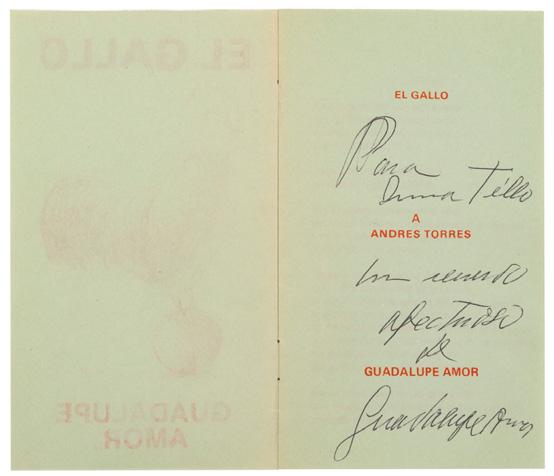 EL GALLO
GUADALUPE
AMOR
EL GALLO
Para
Tello
A
ANDRES TORRES
un recuerdo
afectuoso
de
GUADALUPE AMOR
Guadalupe Amor